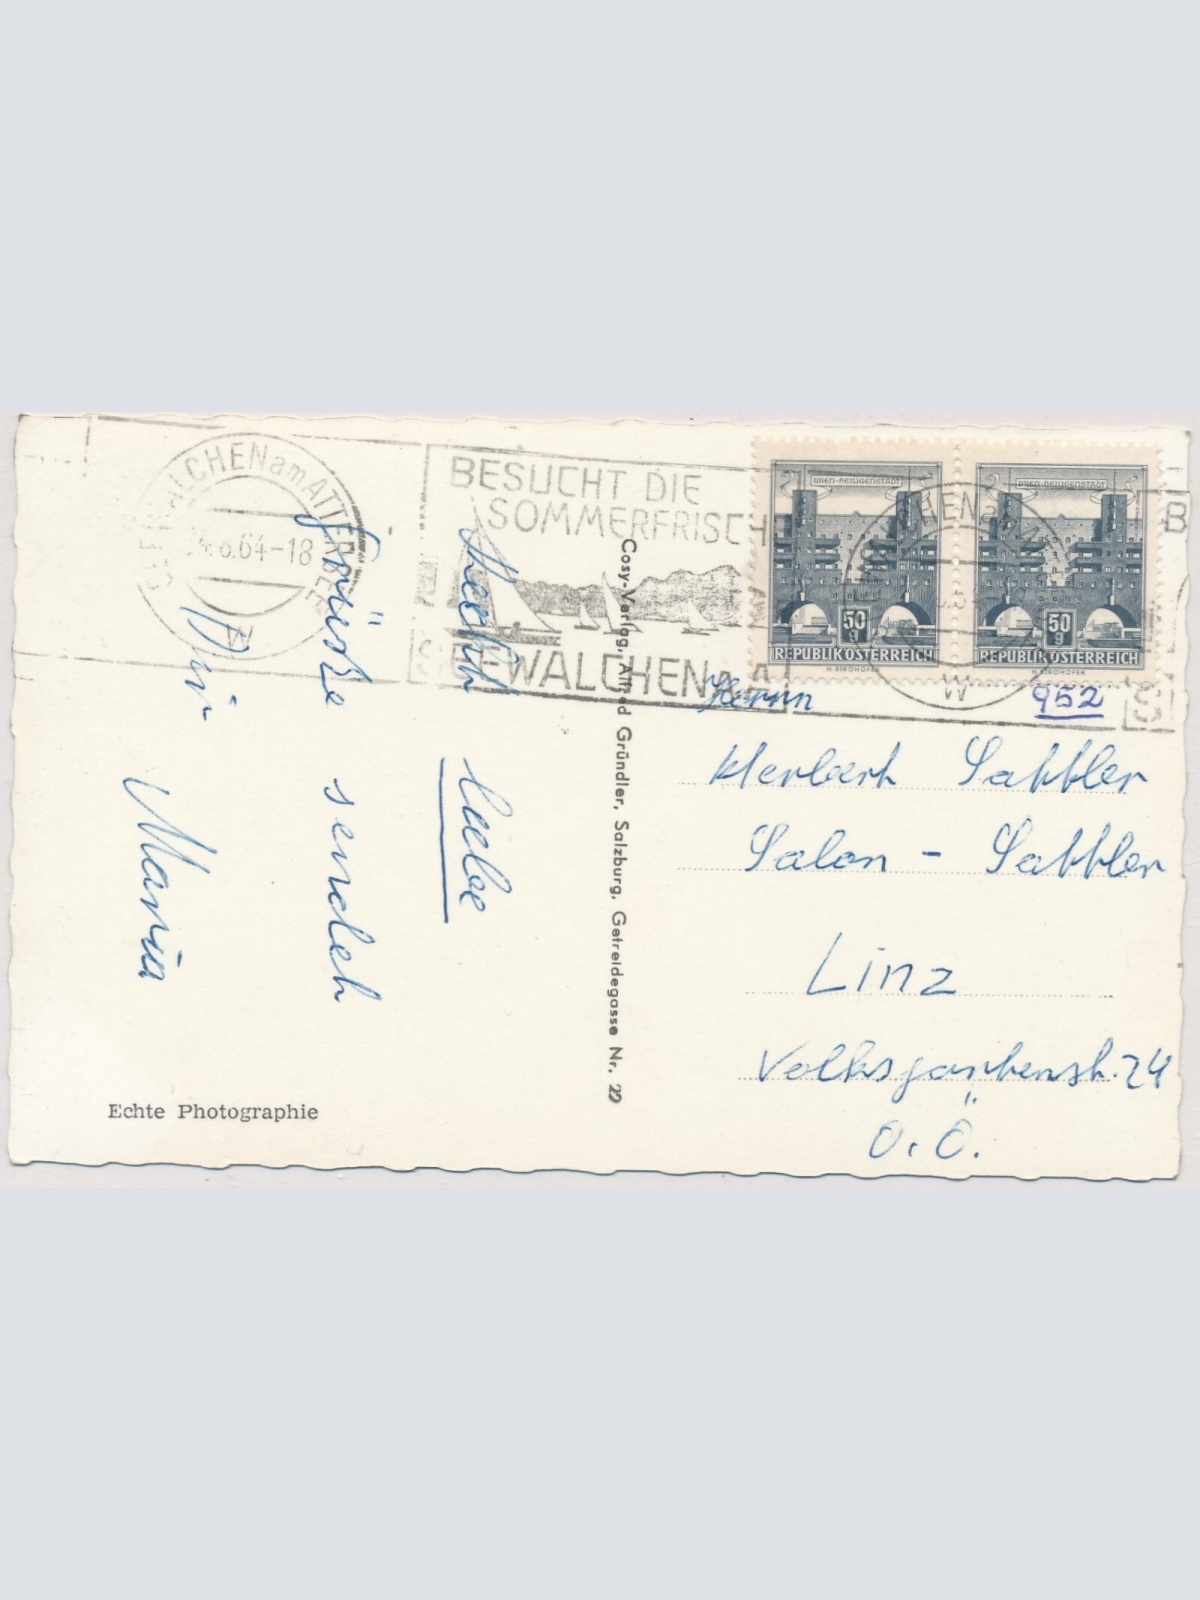 SEEWALCHEN am ATTERSEE
4.8.64-18
W
BESUCHT DIE
SOMMERFRISCHE
SEEWALCHEN a. A.
WIEN-HEILIGENSTADT
50
g
REPUBLIK ÖSTERREICH
H. STROHOFER
WIEN-HEILIGENSTADT
50
g
REPUBLIK ÖSTERREICH
H. STROHOFER
W
B
S
952
Recht liebe
Grüße sendet
Dir Maria
Cosy-Verlag, Alfred Gründler, Salzburg, Getreidegasse Nr. 22
Herrn
Herbert Sattler
Salon - Sattler
Linz
Volksgartenstr. 24
O.Ö.
Echte Photographie